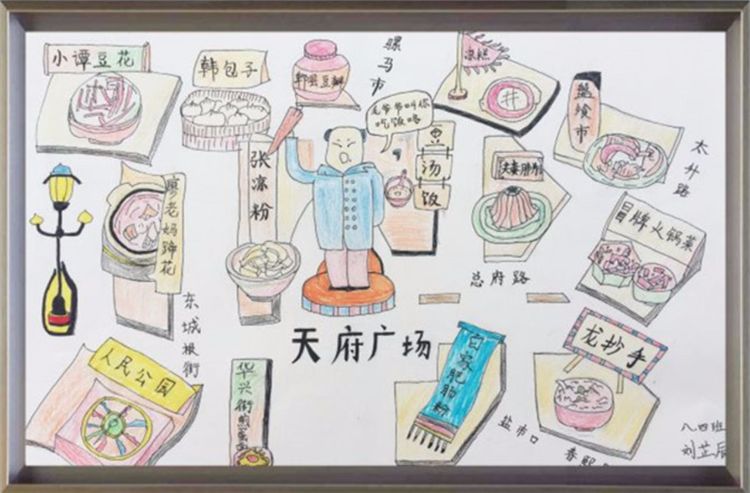 小谭豆花
韩包子
郫县豆瓣
骡马市
毛爷爷叫你
吃饭咯
凉糕
盐烧市
太升路
张凉粉
豆汤饭
夫妻肺片
廖老妈蹄花
冒牌火锅菜
总府路
东城根街
天府广场
人民公园
华兴街煎蛋
白家肥肠粉
龙抄手
盐市口
春熙
八四班
刘芷辰